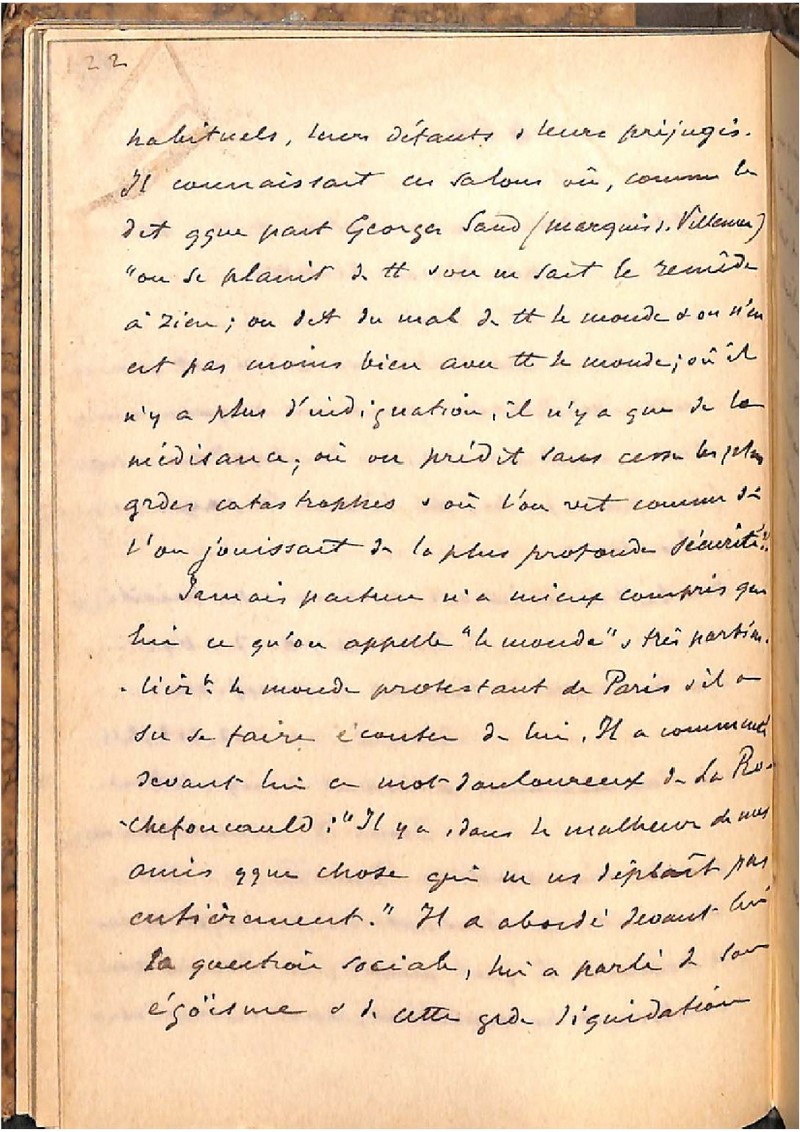 22
habituels, leurs défauts & leurs préjugés.
Il connaissait ces salons où, comme le
dit qque part George Sand (marquis d. Villemer)
"on se plaint de tt & on ne sait le remède
à rien ; on dit du mal de tt le monde & on n'en
est pas moins bien avec tt le monde ; où il
n'y a plus d'indignation, il n'y a que de la
médisance ; où on prédit sans cesse les plus
grdes catastrophes & où l'on vit comme si
l'on jouissait de la plus profonde sécurité".
Jamais pasteur n'a mieux compris que
lui ce qu'on appelle "le monde" & très particu-
-lièrt le monde protestant de Paris & il a
su se faire écouter de lui. Il a commenté
devant lui ce mot douloureux de La Ro-
-chefoucauld : "Il y a, dans le malheur de nos
amis qque chose qui ne ns déplaît pas
entièrement." Il a abordé devant lui
la question sociale, lui a parlé de son
égoïsme & d. cette grde liquidation